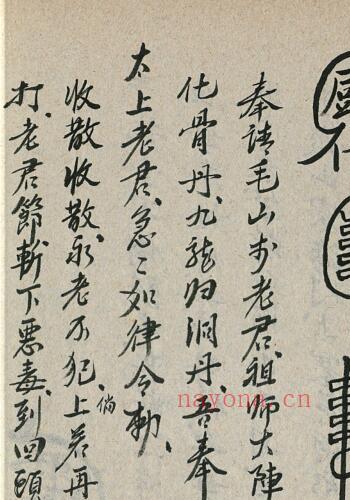 奉請毛山少老君、祖师大陣
化骨丹、九龍归洞丹、吾奉
太上老君、急〻如律令勅、
收散收散、永老不犯、上若再
倘
打、老君節斬下惡毒、到四頭
nayona.cn